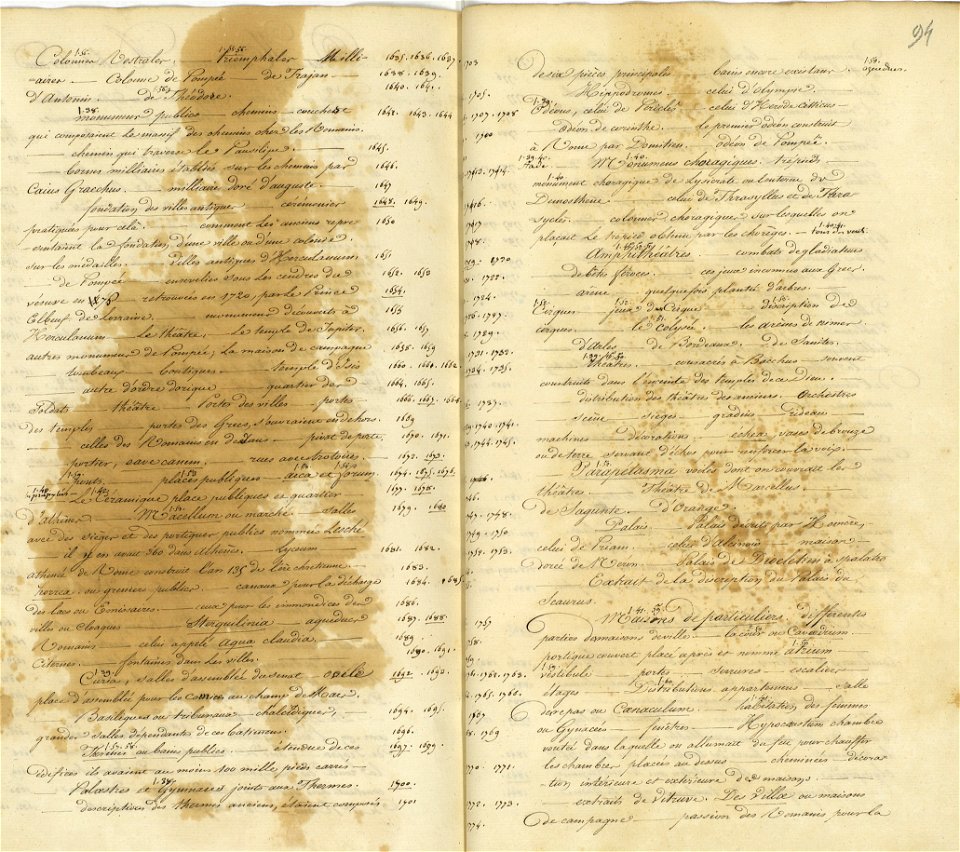 Colonnes Rostrales. Triomphales Milli- 1635. 1636. 1637.
aires — Colonne de Pompée — de Trajan — 1638. 1639.
d'Antonin. — de Théodore. 1640. 1641.
monumens publics — chemins — couches 1642. 1643. 1644
qui composaient le massif des chemins chez les Romains.
— chemin qui traverse le Pausilipe. — 1645.
— bornes milliaires établies sur les chemins par 1646.
Caius Gracchus. — milliaire doré d'auguste. 1647
fondation des villes antiques — cérémonies 1648. 1649.
pratiquées pour cela. — comment les anciens repre 1650
-sentaient la fondation d'une ville ou d'une colonie.
sur les médailles — Villes antiques d'Herculanum 1651
— de Pompée — ensevelies sous les cendres du 1652. 1653
vésuve en — retrouvées en 1720, par le Prince 1654.
Elbeuf de Lorraine. — monumens découverts à 1655
Herculanum — Le théâtre, — Le temple de Jupiter. 1656. 1657
autres monumens de Pompée, La maison de campagne 1658. 1659
tombeaux — boutiques — temple d'Isis 1660. 1661. 1662
— autre d'ordre dorique — quartier des 1664. 1665.
Soldats — théâtre — Portes des villes — portes 1666. 1667. 1668.
des temples — portes des Grecs, s'ouvraient en dehors. 1689
— celles des Romains en dedans. — pivot de porte. 1690. 1691.
portier, cave canem. — rues avec trotoirs. 1692. 1693.
ponts. — places publiques — area et forum. 1694. 1695. 1696.
— Le Céramique place publique et quartier 1697. 1698.
d'athènes — Macellum ou marché — Salles 1679. 1680
avec des sièges et des portiques publics nommées Lesché
il y en avait 360 dans athènes. — Lyceum 1681. 1682.
athénée de Rome construit l'an 135 de l'ère chretienne. 1683.
horrea ou greniers publics — canaux pour la décharge 1684. 1685.
des lacs ou Emissaires — ceux pour les immondices des 1686.
villes ou cloaques — Sterquilinia — aqueducs 1687. 1688.
Romains — celui appellé Aqua claudia. 1689.
Citernes — fontaines dans les villes. 1690. 1691.
Curia, salles d'assemblée du senat — ovile 1692. 1693.
place d'assemblé pour les comices au champ de Mars.
Basiliques ou tribunaux — chalcidiques, 1694. 1695.
grandes salles dépendantes de ces batimens. 1696.
Thermes ou bains publics. — étendue de ces 1697. 1699.
édifices ils avaient au moins 100 mille pieds carrés —
Palestres et Gymnases joints aux Thermes. 1700.
descriptions des thermes anciens, étaient composés 1701
94
de six pièces principales — bains encore existans — aqueducs.
Hippodromes — celui d'Olympie.
Odéons, celui de Périclès — celui d'Herode atticus
— odéon de corinthe. — le premier odéon construit
à Rome par Domitien. — odéon de Pompeï.
Monumens choragiques. trépieds —
monument choragique de Lysicrate ou lanterne de
Demosthene — celui de Thrasylles et de Thra
sycles. — colonnes choragiques sur lesquelles on
plaçait le trepied obtenu par les chorèges. — tour des vents.
Amphithéâtres. — combats de gladiateurs
de bêtes féroces. — ces jeux inconnus aux Grecs.
— arène — quelquefois plantée d'arbres.
Cirques — jeux du Cirque — description des
cirques. — le Colysée — les arènes de nimes.
d'Arles — de Bordeaux — de Saintes.
Théâtres. — consacrés à Bacchus — souvent
construits dans l'enceinte des temples de ce Dieu. —
distribution des théâtres des anciens. Orchestres
— scène — sièges — gradins — rideau —
machines — Décorations — échea, vases de bronze
ou de terre servant d'échos pour renforcer la voix.
Parapetasma voiles dont on couvrait les
théâtres. — Théâtre de Marcellus
de Sagunte. — d'Orange.
Palais — Palais décrits par Homère,
celui de Priam. — celui d'Alcinoüs — maison
dorée de Neron — Palais de Diocletien à Spalatro
Extrait de la description du Palais de
Scaurus.
Maisons de particuliers, différentes
parties des maisons de ville — la cour ou Cavædium.
portique couvert placé après et nommé atrium
vestibule — portes — serrures — escaliers
étages — Distributions, appartemens — salle
de repas ou Cœnaculum. — habitation des femmes
ou Gynæcés — fenêtres — Hypocaustum chambre
voutée dans laquelle on allumait du feu pour chauffer
les chambres placées au dessus — cheminées — décora
-tion intérieure et extérieure des maisons. —
— extraits de Vitruve. Des Villæ ou maisons
de campagne — passion des Romains pour la